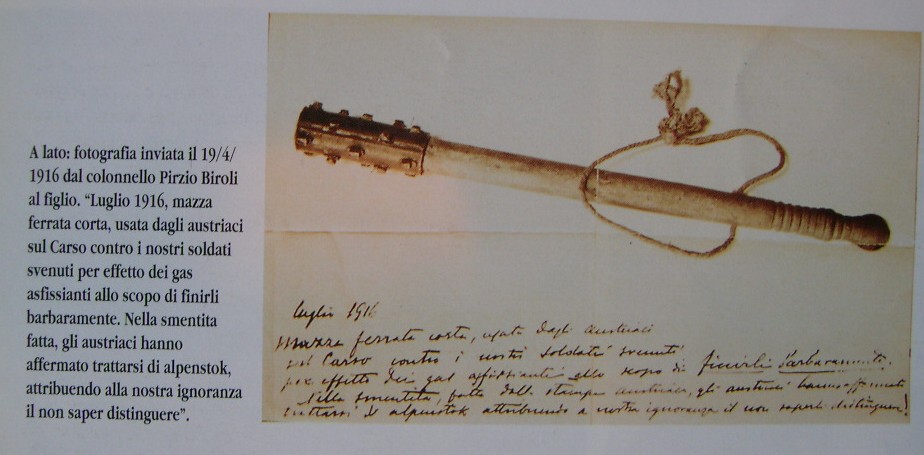 A lato: fotografia inviata il 19/4/
1916 dal colonnello Pirzio Biroli
al figlio. “Luglio 1916, mazza
ferrata corta, usata dagli austriaci
sul Carso contro i nostri soldati
svenuti per effetto dei gas
asfissianti allo scopo di finirli
barbaramente. Nella smentita
fatta, gli austriaci hanno
affermato trattarsi di alpenstok,
attribuendo alla nostra ignoranza
il non saper distinguere”.
Luglio 1916
mazza ferrata corta, usata dagli austriaci
sul Carso contro i nostri soldati svenuti
per effetto dei gas asfissianti allo scopo di finirli barbaramente.
Nella smentita, fatta dalla stampa austriaca, gli austriaci hanno affermato
trattarsi di alpenstok attribuendo a nostra ignoranza il non saperli distinguere!